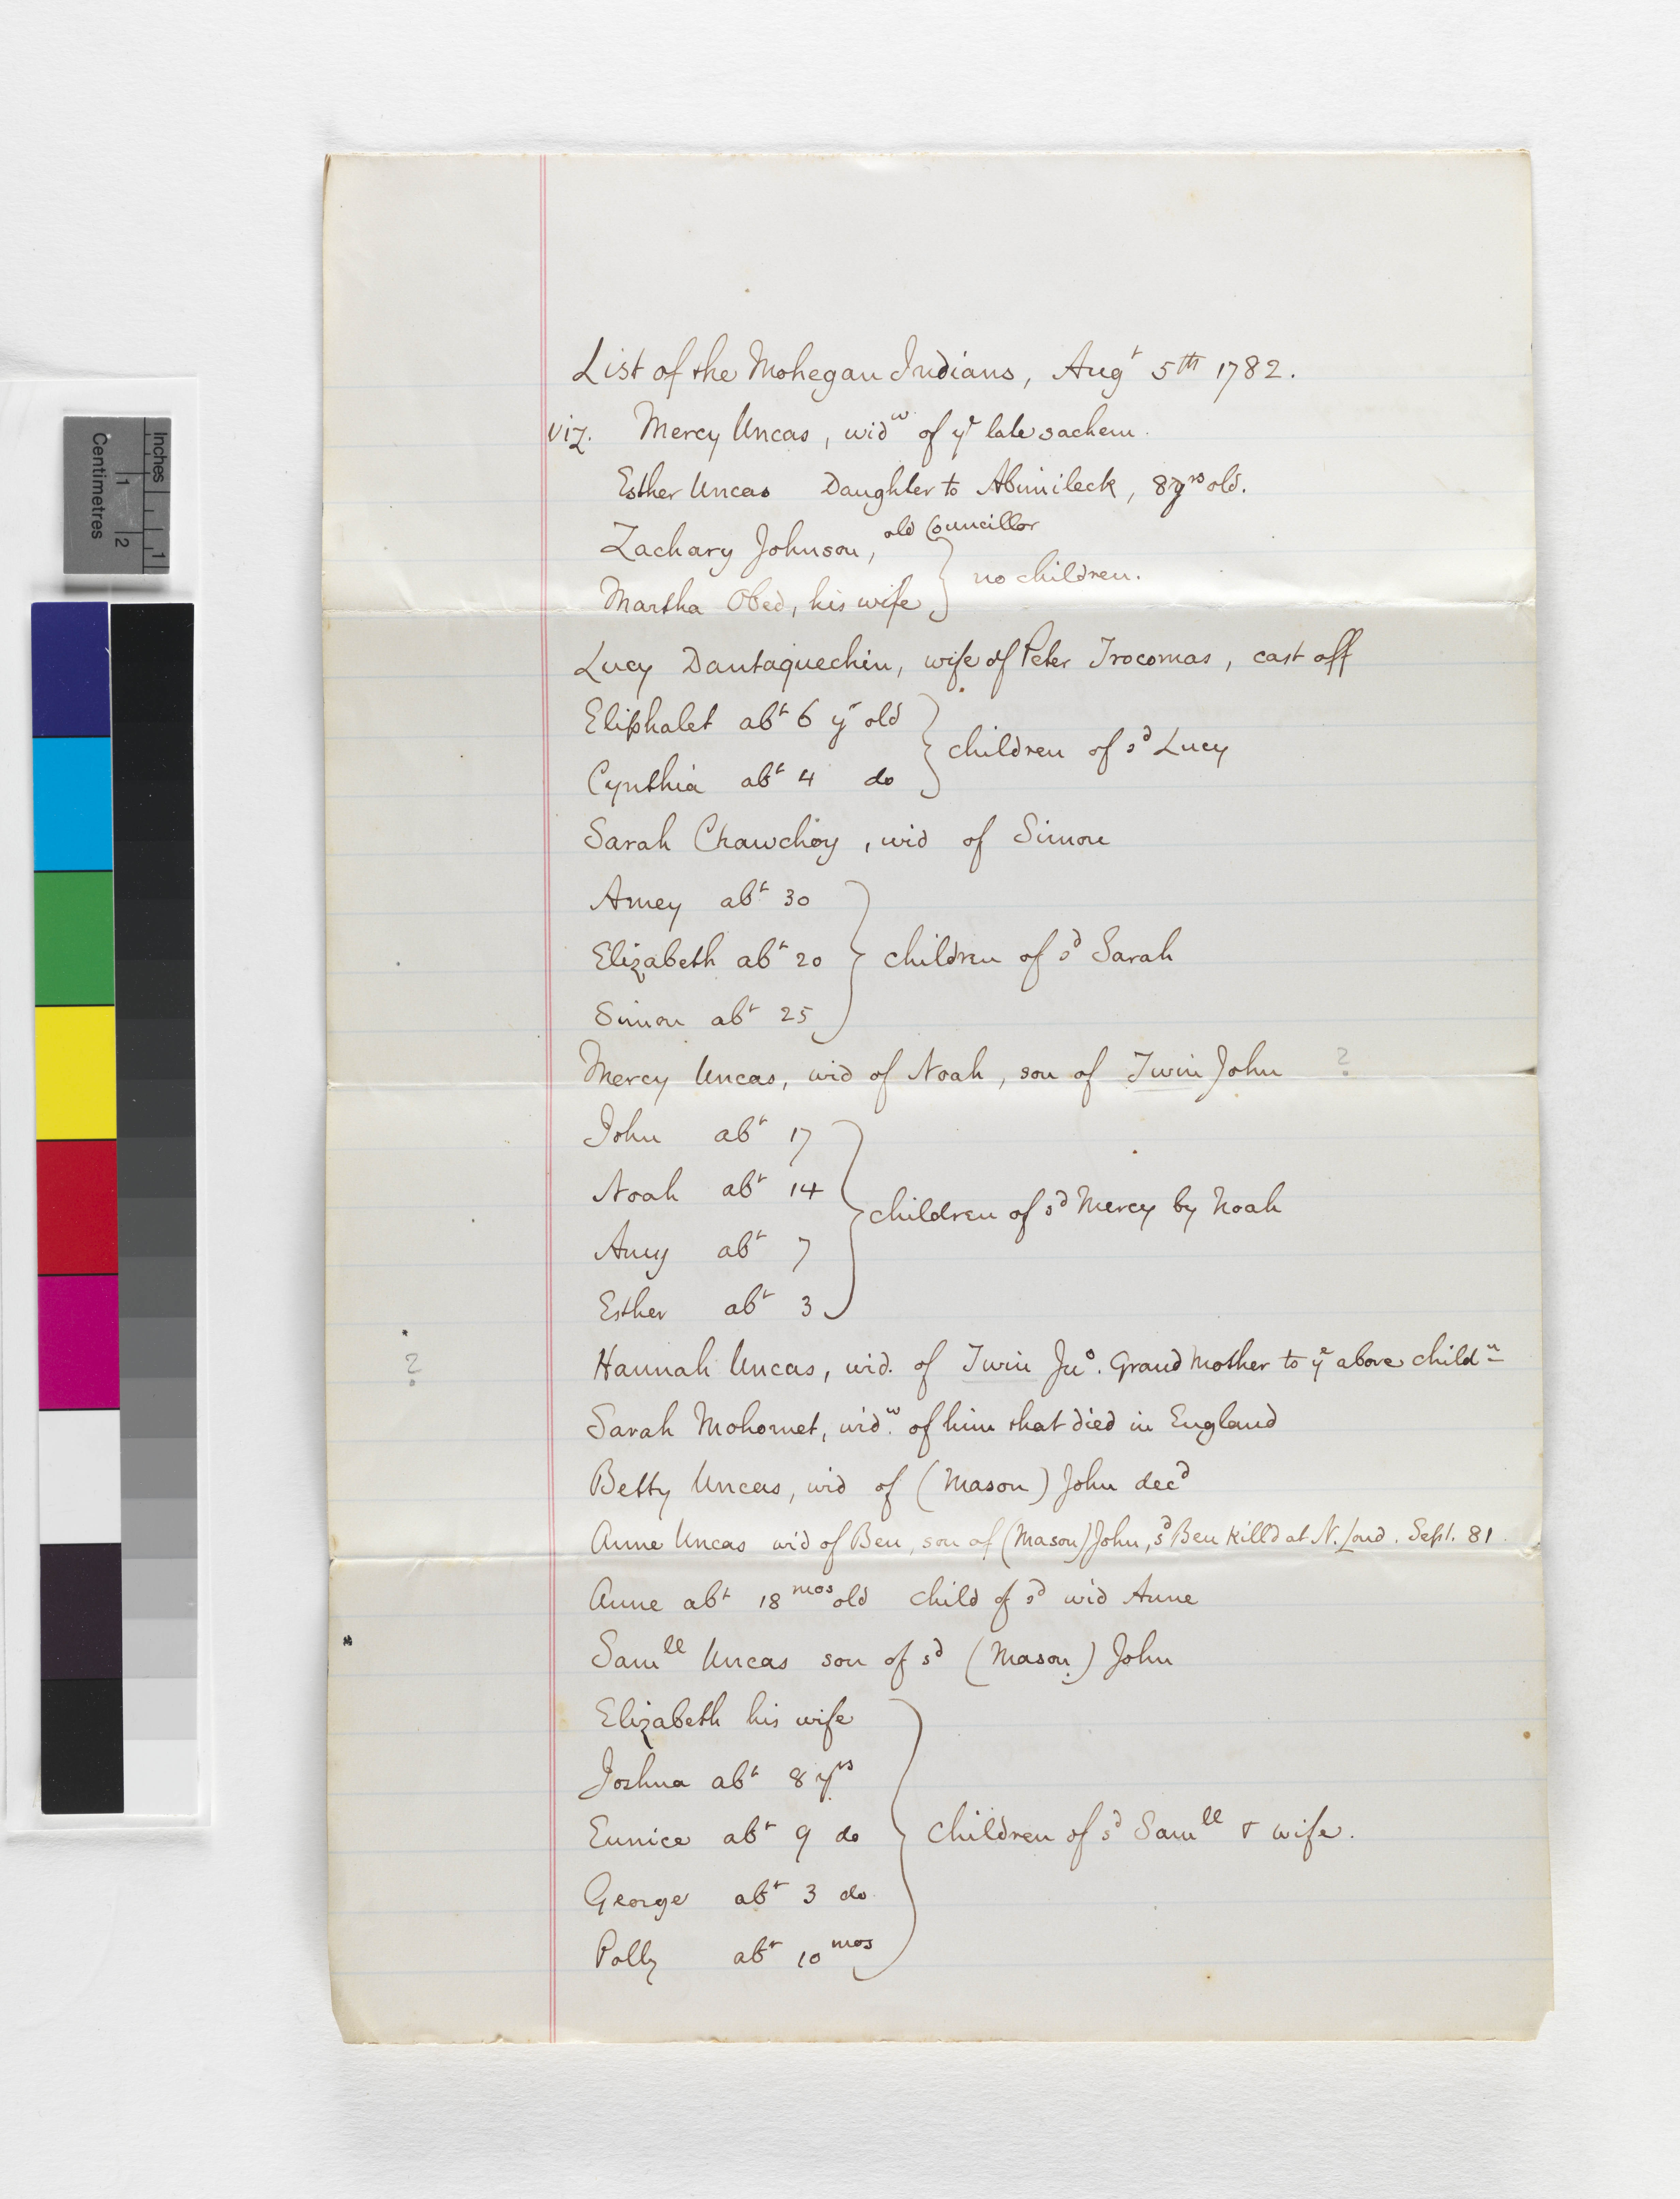 List of the Mohegan Indians, Augt 5th 1782.
viz. Mercy Uncas, widw of ye late sachem.
Esther Uncas Daughter to Abimileck, 8 yrs old.
Zachary Johnson, old Councillor
Martha Obed, his wife } no children.
Lucy Dantaquechin, wife of Peter Trocomas, cast off
Eliphalet abt 6 yr old
Cynthia abt 4 do } children of sd Lucy
Sarah Chawchoy, wid of Simon
Amey abt 30
Elizabeth abt 20 } children of sd Sarah
Simon abt 25
Mercy Uncas, wid of Noah, son of Twin John ?
John abt 17
Noah abt 14 } children of sd Mercy by Noah
Amy abt 7
Esther abt 3
? Hannah Uncas, wid. of Twin Jno. Grand Mother to ye above childn
Sarah Mohomet, widw. of him that died in England
Betty Uncas, wid of (Mason) John decd
Anne Uncas wid of Ben, son of (Mason) John, sd Ben Killd at N. Lond. Sept. 81.
Anne abt 18 mos old child of sd wid Anne
Samll Uncas son of sd (Mason) John
Elizabeth his wife
Joshua abt 8 yrs
Eunice abt 9 do } children of sd Samll & wife.
George abt 3 do
Polly abt 10 mos
Inches
Centimetres
1
2
1